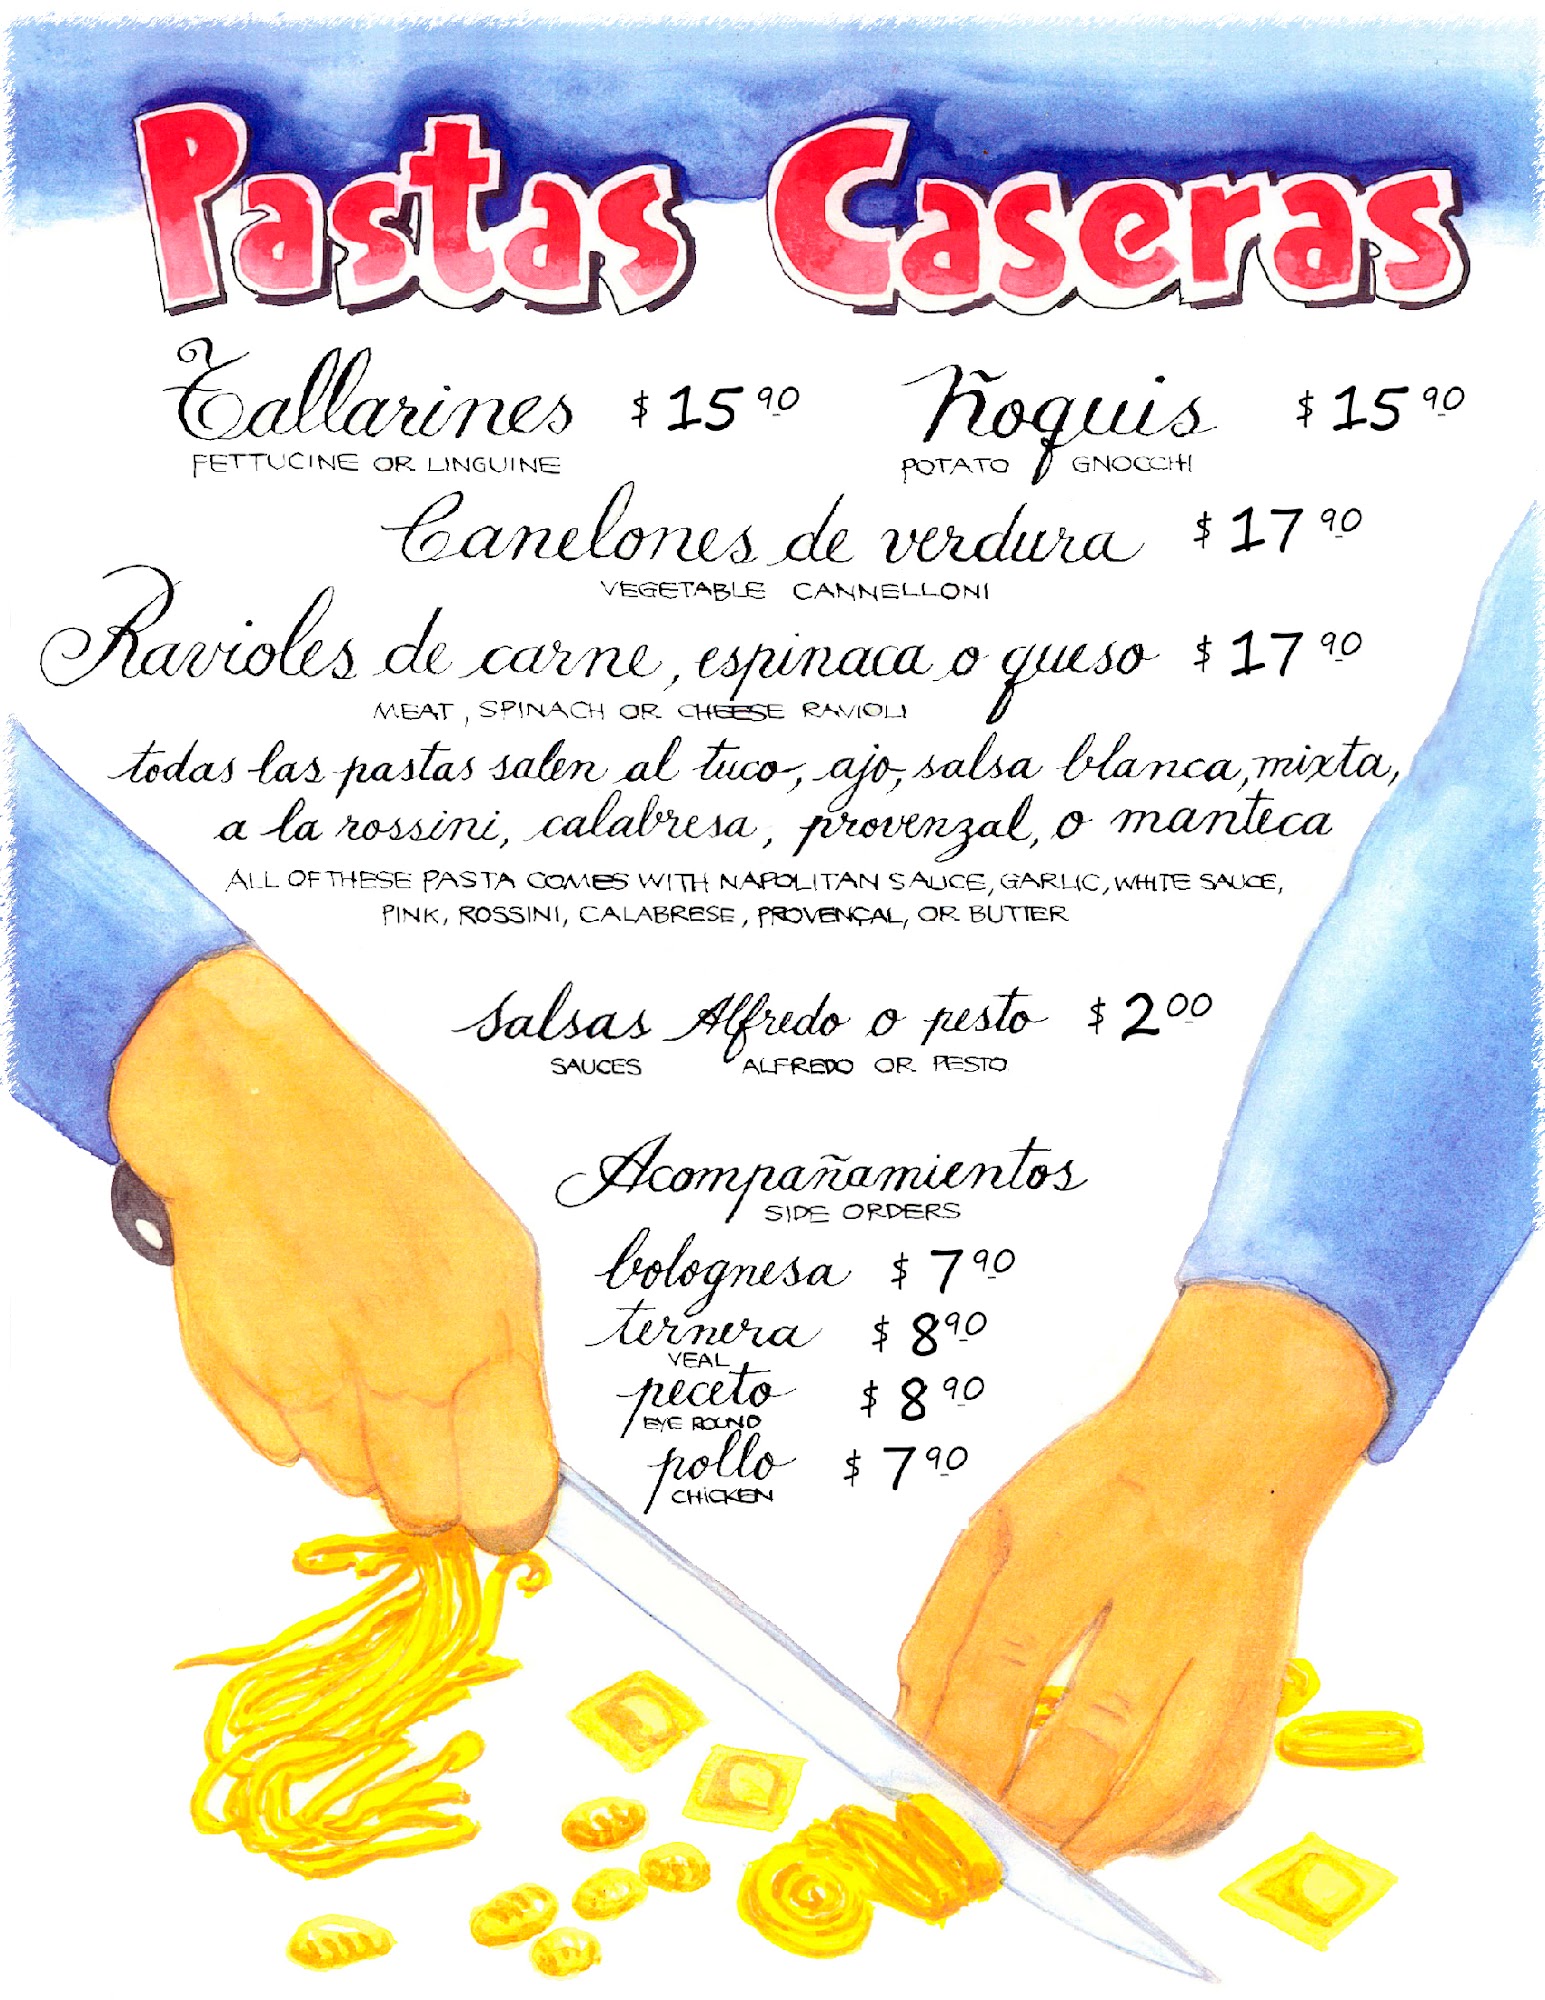 Pastas Caseras
Tallarines $15.90 Ñoquis $15.90
FETTUCINE OR LINGUINE POTATO GNOCCHI
Canelones de verdura $17.90
VEGETABLE CANNELLONI
Ravioles de carne, espinaca o queso $17.90
MEAT, SPINACH OR CHEESE RAVIOLI
todas las pastas salen al tuco, ajo, salsa blanca, mixta,
a la rossini, calabresa, provenzal, o manteca
ALL OF THESE PASTA COMES WITH NAPOLITAN SAUCE, GARLIC, WHITE SAUCE,
PINK, ROSSINI, CALABRESE, PROVENÇAL, OR BUTTER
Salsas Alfredo o pesto $2.00
SAUCES ALFREDO OR PESTO
Acompañamientos
SIDE ORDERS
bolognesa $7.90
ternera $8.90
VEAL
peceto $8.90
EYE ROUND
pollo $7.90
CHICKEN